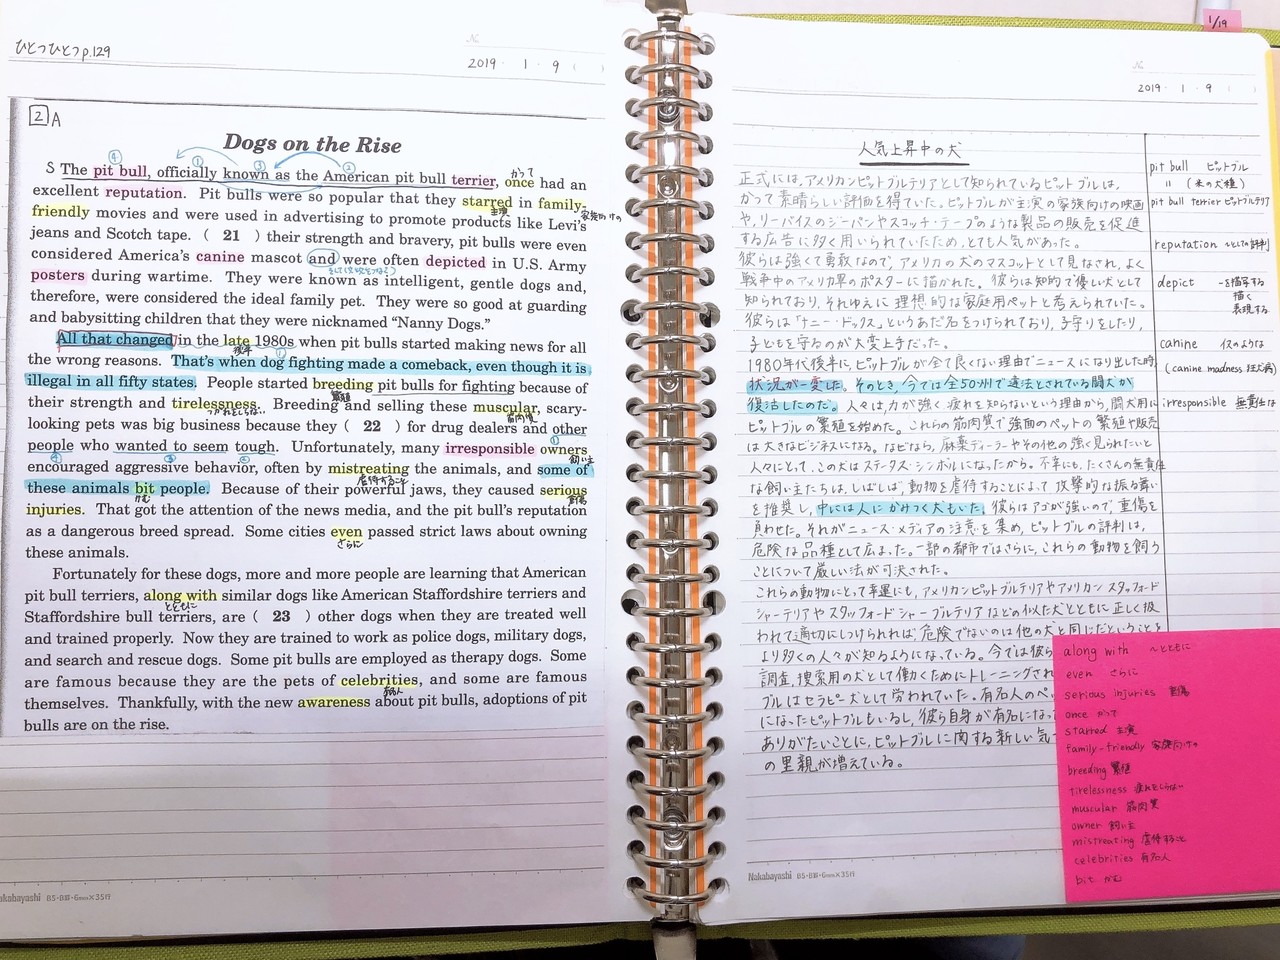 ひとつひとつp.129
No.
2019 1 9 ( )
2 A
Dogs on the Rise
④ ① ③ ② かつて
S The pit bull, officially known as the American pit bull terrier, once had an
excellent reputation. Pit bulls were so popular that they starred in family-
主演 家族向けの
friendly movies and were used in advertising to promote products like Levi's
jeans and Scotch tape. ( 21 ) their strength and bravery, pit bulls were even
considered America's canine mascot and were often depicted in U.S. Army
posters during wartime. They were known as intelligent, gentle dogs and,
therefore, were considered the ideal family pet. They were so good at guarding
and babysitting children that they were nicknamed “Nanny Dogs.”
All that changed in the late 1980s when pit bulls started making news for all
後半 ①
the wrong reasons. That's when dog fighting made a comeback, even though it is
illegal in all fifty states. People started breeding pit bulls for fighting because of
繁殖
their strength and tirelessness. Breeding and selling these muscular, scary-
つかれをしらない 筋肉質
looking pets was big business because they ( 22 ) for drug dealers and other
people who wanted to seem tough. Unfortunately, many irresponsible owners
④ ③ ② ① 飼い主
encouraged aggressive behavior, often by mistreating the animals, and some of
虐待すること
these animals bit people. Because of their powerful jaws, they caused serious
かむ 重傷
injuries. That got the attention of the news media, and the pit bull's reputation
as a dangerous breed spread. Some cities even passed strict laws about owning
さらに
these animals.
Fortunately for these dogs, more and more people are learning that American
pit bull terriers, along with similar dogs like American Staffordshire terriers and
とともに
Staffordshire bull terriers, are ( 23 ) other dogs when they are treated well
and trained properly. Now they are trained to work as police dogs, military dogs,
and search and rescue dogs. Some pit bulls are employed as therapy dogs. Some
are famous because they are the pets of celebrities, and some are famous
有名人
themselves. Thankfully, with the new awareness about pit bulls, adoptions of pit
bulls are on the rise.
Nakabayashi B5・B罫・6mm×35行
1/19
No.
2019 1 9 ( )
人気上昇中の犬
正式には、アメリカンピットブルテリアとして知られているピットブルは、
かつて素晴らしい評価を得ていた。ピットブルが主演の家族向けの映画
や、リーバイスのジーパンやスコッチ・テープのような製品の販売を促進
する広告に多く用いられていたため、とても人気があった。
彼らは強くて勇敢なので、アメリカの犬のマスコットとして見なされ、よく
戦争中のアメリカ軍のポスターに描かれた。彼らは知的で優しい犬として
知られており、それゆえに理想的な家庭用ペットと考えられていた。
彼らは「ナニー・ドッグス」というあだ名をつけられており、子守りをしたり、
子どもを守るのが大変上手だった。
1980年代後半に、ピットブルが全て良くない理由でニュースになり出した時、
状況が一変した。そのとき、今では全50州で違法とされている闘犬が
復活したのだ。人々は、力が強く疲れを知らないという理由から、闘犬用に
ピットブルの繁殖を始めた。これらの筋肉質で強面のペットの繁殖や販売
は大きなビジネスになる。なぜなら、麻薬ディーラーやその他の強く見られたいと
人々にとって、この犬はステータス・シンボルになったから。不幸にも、たくさんの無責任
な飼い主たちは、しばしば、動物を虐待することによって攻撃的な振る舞い
を推奨し、中には人にかみつく犬もいた。彼らはアゴが強いので、重傷を
負わせた。それがニュース・メディアの注意を集め、ピットブルの評判は、
危険な品種として広まった。一部の都市ではさらに、これらの動物を飼う
ことについて厳しい法が可決された。
これらの動物にとって幸運にも、アメリカンピットブルテリアやアメリカンスタッフォード
シャーテリアやスタッフォードシャーブルテリアなどの似た犬とともに正しく扱
われて適切にしつけられれば、危険でないのは他の犬と同じだということを
より多くの人々が知るようになっている。今では彼ら
調査、捜索用の犬として働くためにトレーニングされ
ブルはセラピー犬として労われていた。有名人のペッ
になったピットブルもいるし、彼ら自身が有名になっ
ありがたいことに、ピットブルに関する新しい気
の里親が増えている。
pit bull ピットブル
〃 (米の犬種)
pit bull terrier ピットブルテリア
reputation ～としての評判
depict ～を描写する
描く
表現する
canine イヌのような
(canine madness 狂犬病)
irresponsible 無責任な
along with ～とともに
even さらに
serious injuries 重傷
once かつて
starred 主演
family-friendly 家族向けの
breeding 繁殖
tirelessness 疲れをしらない
muscular 筋肉質
owner 飼い主
mistreating 虐待すること
celebrities 有名人
bit かむ
Nakabayashi B5・B罫・6mm×35行